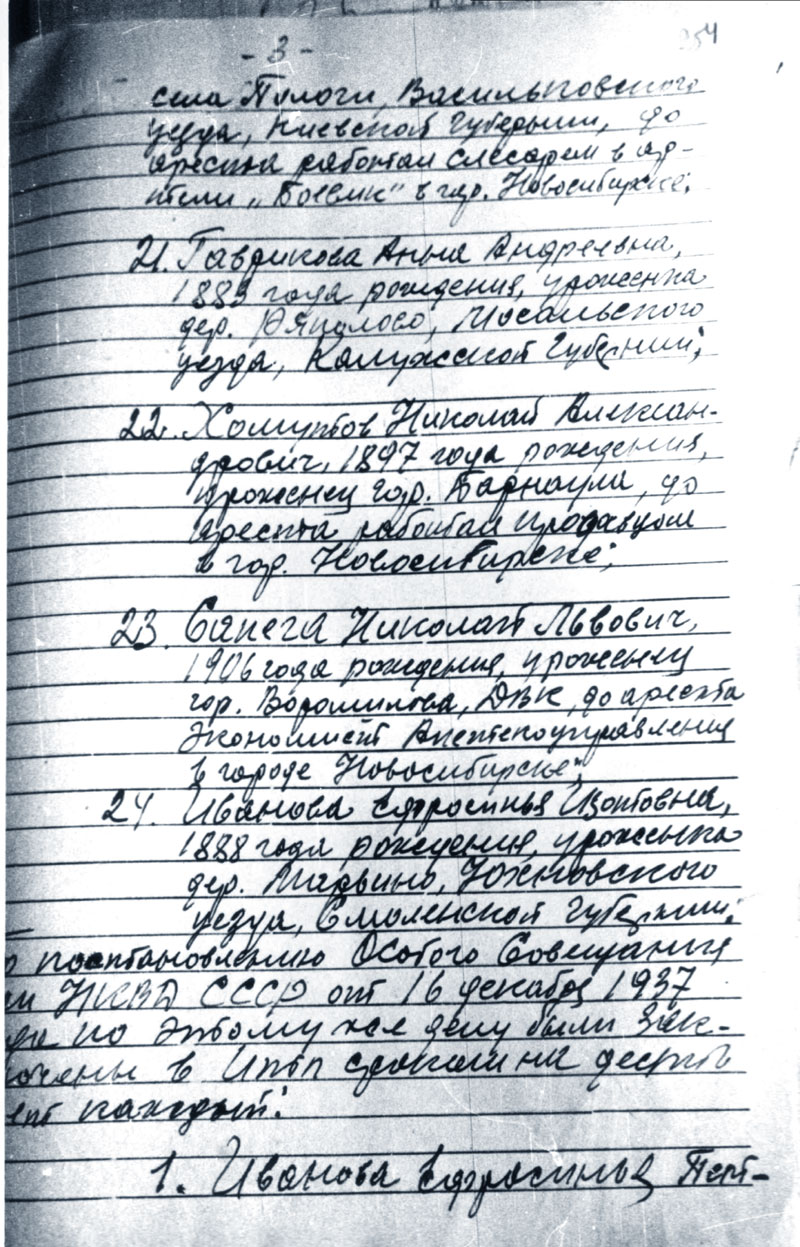 - 3 -
254
села Пологи, Васильковского
уезда, Киевской губернии, до
ареста работал слесарем в ар-
тели „Боевик" в гор. Новосибирске;
21. Гаврикова Анна Андреевна,
1889 года рождения, уроженка
дер. Мосальского
уезда, Калужской губернии;
22. Хомутов Николай Алексан-
дрович, 1897 года рождения,
уроженец гор. Барнаула, до
ареста работал продавцом
в гор. Новосибирске;
23. Сапега Николай Львович,
1906 года рождения, уроженец
гор. Ворошилова, ДВК, до ареста
экономист Аптекоуправления
в городе Новосибирске;
24. Иванова Ефросинья Изотовна,
1888 года рождения, уроженка
дер. Марьино, Юхновского
уезда, Смоленской губернии;
о постановлению Особого Совещания
ри НКВД СССР от 16 декабря 1937
да по этому же делу были зак-
ючены в ИТЛ сроком на десять
ет каждый:
1. Иванова Ефросинья Пет-